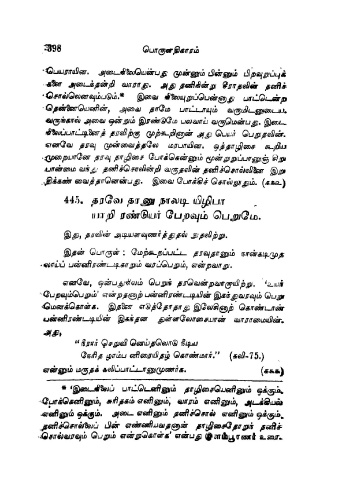 398 பொருளதிகாரம்
பெயராயின. அடைநிலையென்பது முன்னும் பின்னும் பிறவுறுப்புக்
களை அடைந்தன்றி வாராது. அது தனிநின்று சீராதலின் தனிச்
சொல்லெனவும்படும்.* இவை நிலையுறுப்பென்னாது பாட்டென்ற
தென்னையெனின், அவை தாமே பாட்டாயும் வருமிடனுடைய.
வருங்கால் அவை ஒன்றும் இரண்டுமே பலவாய் வருமென்பது. இடை
நிலைப்பாட்டினைத் தரவிற்கு முற்கூறினான் அது பெயர் பெறுதலின்.
எனவே தரவு முன்வைத்தலே மரபாயின. ஒத்தாழிசை கூறிய
முறையானே தரவு தாழிசை போக்கென்னும் மூன்றுறுப்பானுஞ் சிறு
பான்மை வந்து தனிச்சொலின்றி வருதலின் தனிச்சொல்லினை இறு
திக்கண் வைத்தானென்பது. இவை போக்கிச் சொல்லுதும். (௧௩௨)
445. தரவே தானு நாலடி யிழிபா
யாறி ரண்டுயர் பேறவும் பெறுமே.
இது, தரவின் அடியளவுணர்த்துதல் நுதலிற்று.
இதன் பொருள் : மேற்கூறப்பட்ட தரவுதானும் நான்கடிமுத
லாய்ப் பன்னிரண்டடிகாறும் வரப்பெறும், என்றவாறு.
எனவே, ஒன்பதுநிலம் பெறுந் தரவென்றவாறாயிற்று. 'உயர்
பேறவும்பெறும்' என்றதனாற் பன்னிரண்டடியின் இகந்துவரவும் பெறு
மெனக்கொள்க. இதனை எடுத்தோதாது இலேசினாற் கொண்டான்
பன்னிரண்டடியின் இகந்தன துள்ளலோசையான் வாராமையின்.
அது,
"நீரார் செறுவி னெய்தலொடு நீடிய
நேரித ழாம்ப னிரையிதழ் கொண்மார்." (கலி-75.)
என்னும் மருதக் கலிப்பாட்டானுமுணர்க. (௧௩௩)
* 'இடைநிலைப் பாட்டெனினும் தாழிசையெனினும் ஒக்கும்.
போக்கெனினும், சுரிதகம் எனினும், வாரம் எனினும், அடக்கியல்
எனினும் ஒக்கும். அடை எனினும் தனிச்சொல் எனினும் ஒக்கும்.
தனிச்சொல்லைப் பின் எண்ணியவதனான் தாழிசைதோறும் தனிச்
சொல்வரவும் பெறும் என்றுகொள்க' என்பது இளம்பூரணர் உரை.